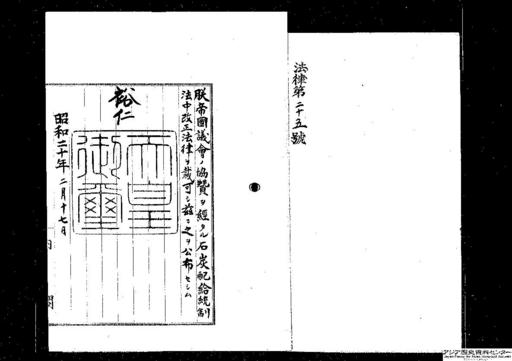 法律第二十五號
朕帝國議會ノ協贊ヲ經タル石炭配給統制
法中改正法律ヲ裁可シ茲ニ之ヲ公布セシム
裕仁
天皇
御璽
昭和二十年二月十七日
内閣
アジア歴史資料センター